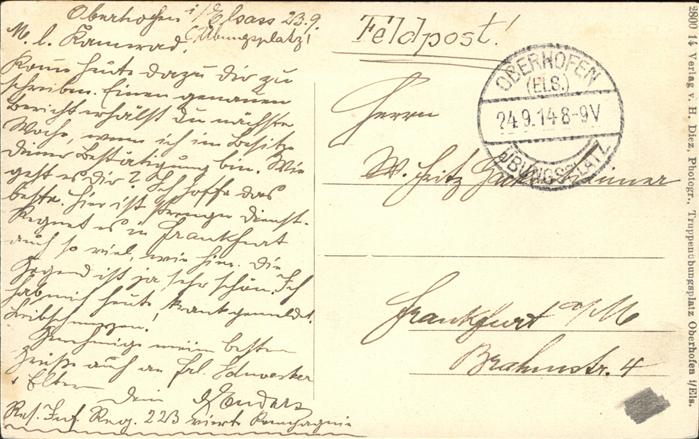 Oberhofen i/Elsass 23.9.
(Übungsplatz)
M. l. Kamerad!
Komme heute dazu dir zu
schreiben. Einen genauen
Bericht erhälst du nächste
Woche, wenn ich im Besitze
deiner Bestätigung bin. Wie
geht es dir? Ich hoffe das
beste. Hier ist strenger Dienst.
Regnet es in Frankfurt
auch so viel, wie hier. Die
Gegend ist ja sehr schön. Ich
hab mich heute krank gemeldet.
Leibschmerzen!
Genehmige mein besten
Grüße auch an Frl.
& Eltern dein
Res. Inf. Reg. 223 vierte Kompagnie
Feldpost!
Herrn
W. Fritz
Frankfurt a/M
Brahmstr. 4
OBERHOFEN
(ELS.)
24.9.14 8-9V
ÜBUNGSPLATZ
2800 14 Verlag v. H. Diez, Photogr., Truppenübungsplatz Oberhofen i/Els.